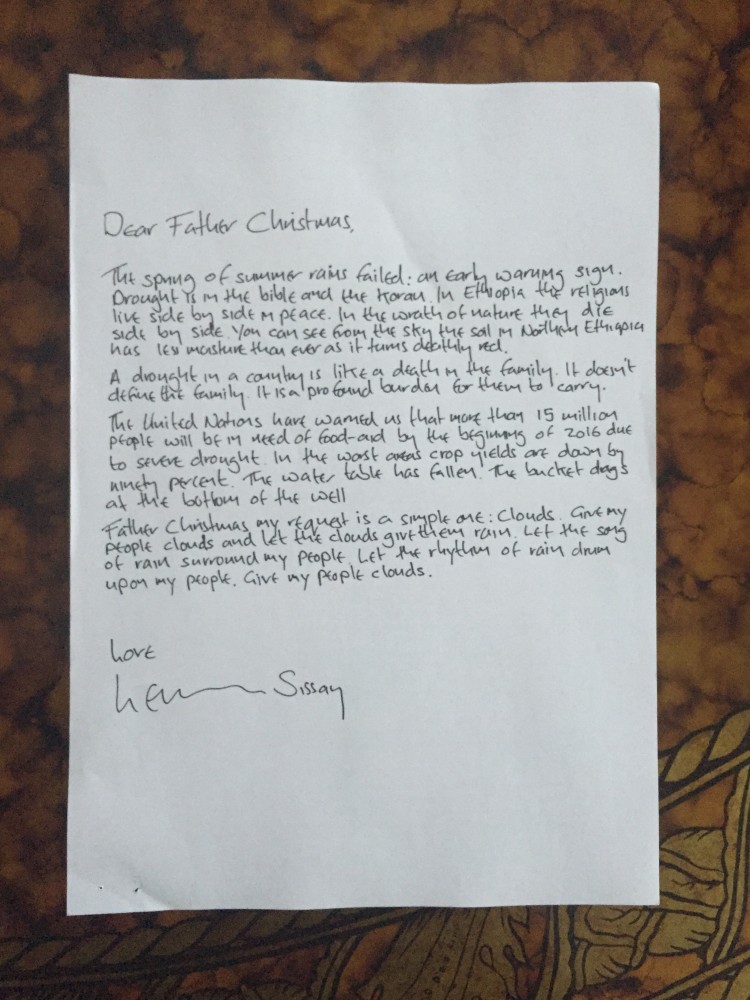 Dear Father Christmas,
The spring of summer rains failed: an early warning sign.
Drought is in the bible and the Koran. In Ethiopia the religions
live side by side in peace. In the wrath of nature they die
side by side. You can see from the sky the soil in Northern Ethiopia
has less moisture than ever as it turns deathly red.
A drought in a country is like a death in the family. It doesn't
define the family. It is a profound burden for them to carry.
The United Nations have warned us that more than 15 million
people will be in need of food-aid by the beginning of 2016 due
to severe drought. In the worst areas crop yields are down by
ninety percent. The water table has fallen. The bucket drags
at the bottom of the well
Father Christmas my request is a simple one: Clouds. Give my
people clouds and let the clouds give them rain. Let the song
of rain surround my people. Let the rhythm of rain drum
upon my people. Give my people clouds.
Love
Lemn Sissay